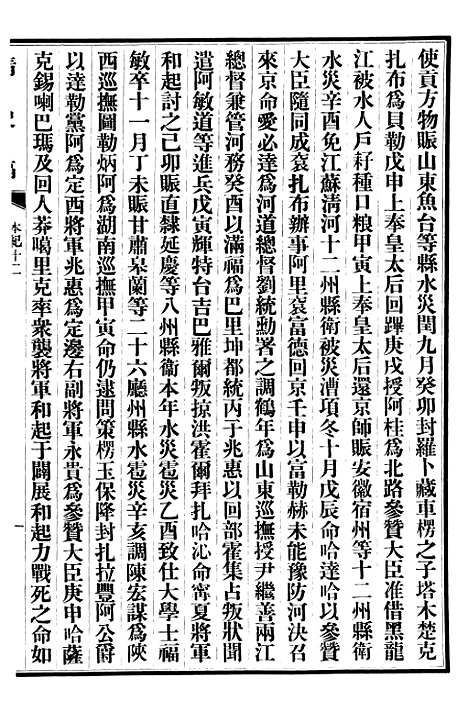 使貢方物賑山東魚台等縣水災閏九月癸卯封羅卜藏車楞之子塔木楚克
扎布爲貝勒戊申上奉皇太后回蹕庚戌授阿桂爲北路參贊大臣准借黑龍
江被水人戶耔種口粮甲寅上奉皇太后還京師賑安徽宿州等十二州縣衞
水災辛酉免江蘇清河十二州縣衞被災漕項冬十月戊辰命哈達哈以參贊
大臣隨同成袞扎布辦事阿里袞富德回京壬申以富勒赫未能豫防河決召
來京命愛必達爲河道總督劉統勳署之調鶴年爲山東巡撫授尹繼善兩江
總督兼管河務癸酉以滿福爲巴里坤都統丙子兆惠以回部霍集占叛狀聞
遣阿敏道等進兵戊寅輝特台吉巴雅爾叛掠洪霍爾拜扎哈沁命甯夏將軍
和起討之己卯賑直隸延慶等八州縣衞本年水災雹災乙酉致仕大學士福
敏卒十一月丁未賑甘肅皋蘭等二十六廳州縣水雹災辛亥調陳宏謀爲陝
西巡撫圖勒炳阿爲湖南巡撫甲寅命仍逮問策楞玉保降封扎拉豐阿公爵
以達勒黨阿爲定西將軍兆惠爲定邊右副將軍永貴爲參贊大臣庚申哈薩
克錫喇巴瑪及回人莽噶里克率衆襲將軍和起于闢展和起力戰死之命如
清史稿
本紀十二
一